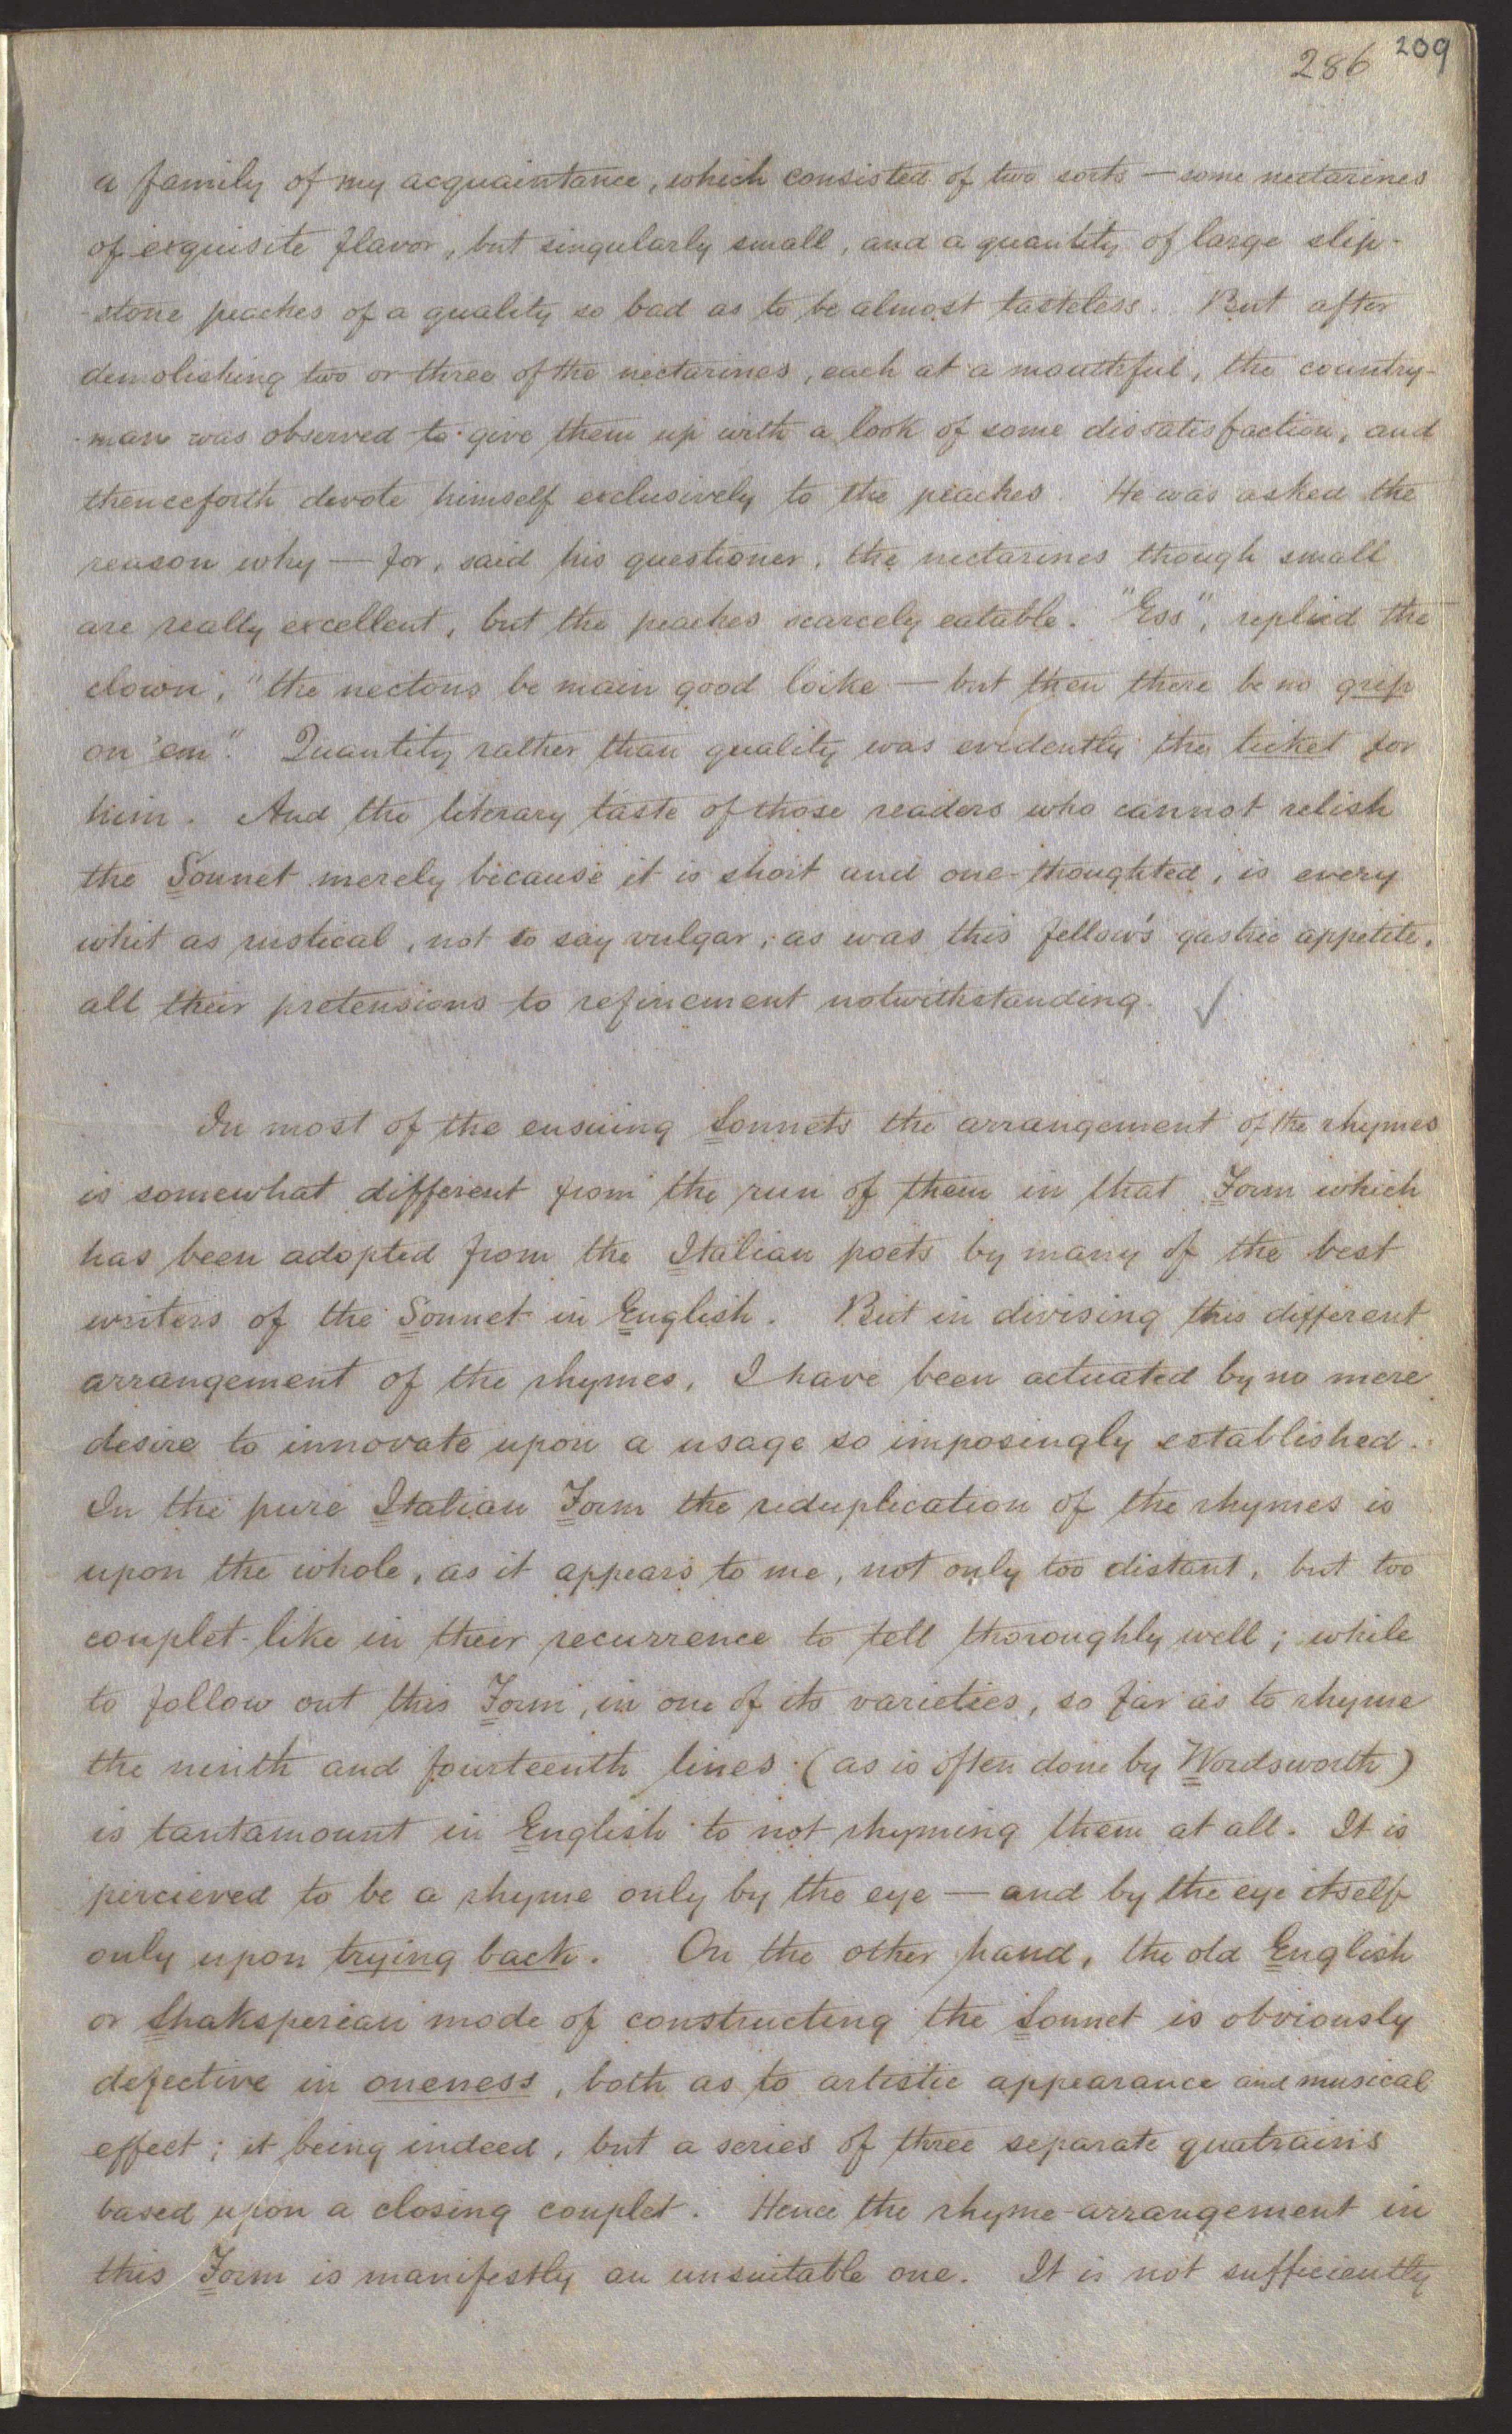 286 209
a family of my acquaintance, which consisted of two sorts — some nectarines
of exquisite flavor, but singularly small, and a quantity of large slip-
-stone peaches of a quality so bad as to be almost tasteless. But after
demolishing two or three of the nectarines, each at a mouthful, the country-
-man was observed to give them up with a look of some dissatisfaction, and
thenceforth devote himself exclusively to the peaches. He was asked the
reason why — for, said his questioner, the nectarines though small
are really excellent, but the peaches scarcely eatable. "Ess", replied the
clown, "the nectons be main good loike — but then there be no grip
on 'em". Quantity rather than quality was evidently the ticket for
him. And the literary taste of those readers who cannot relish
the Sonnet merely because it is short and one-thoughted, is every
whit as rustical, not to say vulgar, as was this fellow's gastric appetite,
all their pretensions to refinement notwithstanding. ✓
In most of the ensuing Sonnets the arrangement of the rhymes
is somewhat different from the run of them in that Form which
has been adopted from the Italian poets by many of the best
writers of the Sonnet in English. But in divising this different
arrangement of the rhymes, I have been actuated by no mere
desire to innovate upon a usage so imposingly established.
In the pure Italian Form the reduplication of the rhymes is
upon the whole, as it appears to me, not only too distant, but too
couplet-like in their recurrence to tell thoroughly well; while
to follow out this Form, in one of its varieties, so far as to rhyme
the ninth and fourteenth lines (as is often done by Wordsworth)
is tantamount in English to not rhyming them at all. It is
percieved to be a rhyme only by the eye — and by the eye itself
only upon trying back. On the other hand, the old English
or Shaksperian mode of constructing the Sonnet is obviously
defective in oneness, both as to artistic appearance and musical
effect; it being indeed, but a series of three separate quatrains
based upon a closing couplet. Hence the rhyme-arrangement in
this Form is manifestly an unsuitable one. It is not sufficiently